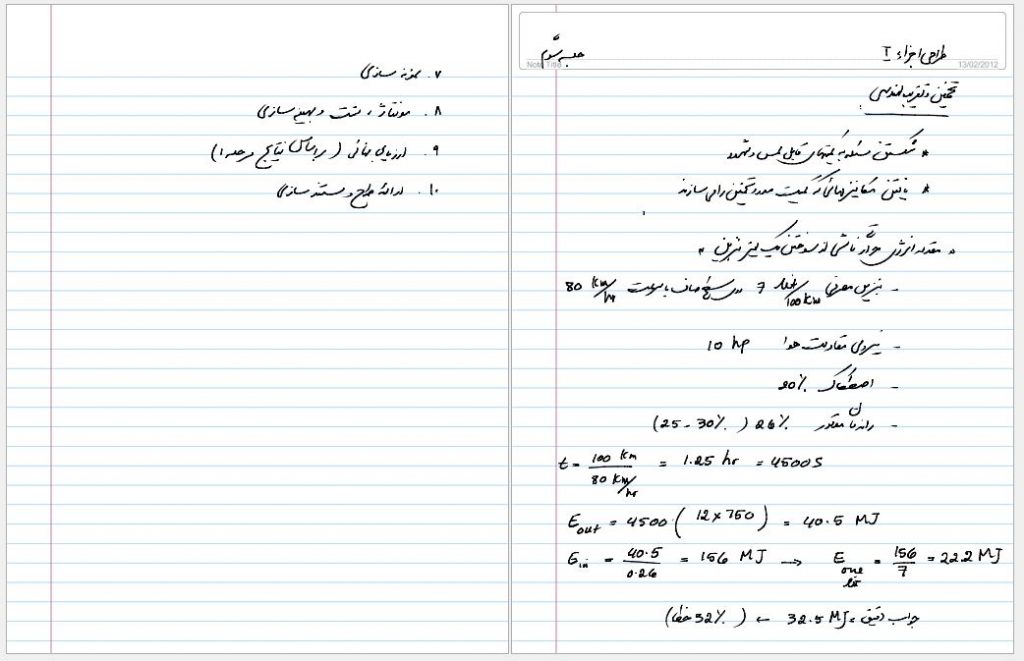 طراحی اجزاء I جلسه سوم
Note Title 13/02/2012
تخمین و تقریب مهندسی
* شکستن مسئله به کمیتهای قابل لمس و شهود
* یافتن مکانیزمهائی که کمیت مورد تخمین را می سازند
* مقدار انرژی آزاد ناشی از سوختن یک لیتر بنزین *
- بنزین مصرفی 7 لیتر/100 Km در سطح صاف با سرعت 80 Km/hr
- نیروی مقاومت هوا 10 hp
- اصطکاک 20%
- راندمان موتور 26% (25-30%)
t = 100 Km / 80 Km/hr = 1.25 hr = 4500 S
E out = 4500 (12 × 750) = 40.5 MJ
E in = 40.5 / 0.26 = 156 MJ → E one lit = 156 / 7 = 22.2 MJ
جواب دقیق = 32.5 MJ ← (32% خطا)
۷. نمونه سازی
۸. مونتاژ، تست و بهینه سازی
۹. ارزیابی نهائی (براساس نتایج مرحله ۱)
۱۰. ارائه طرح و مستند سازی